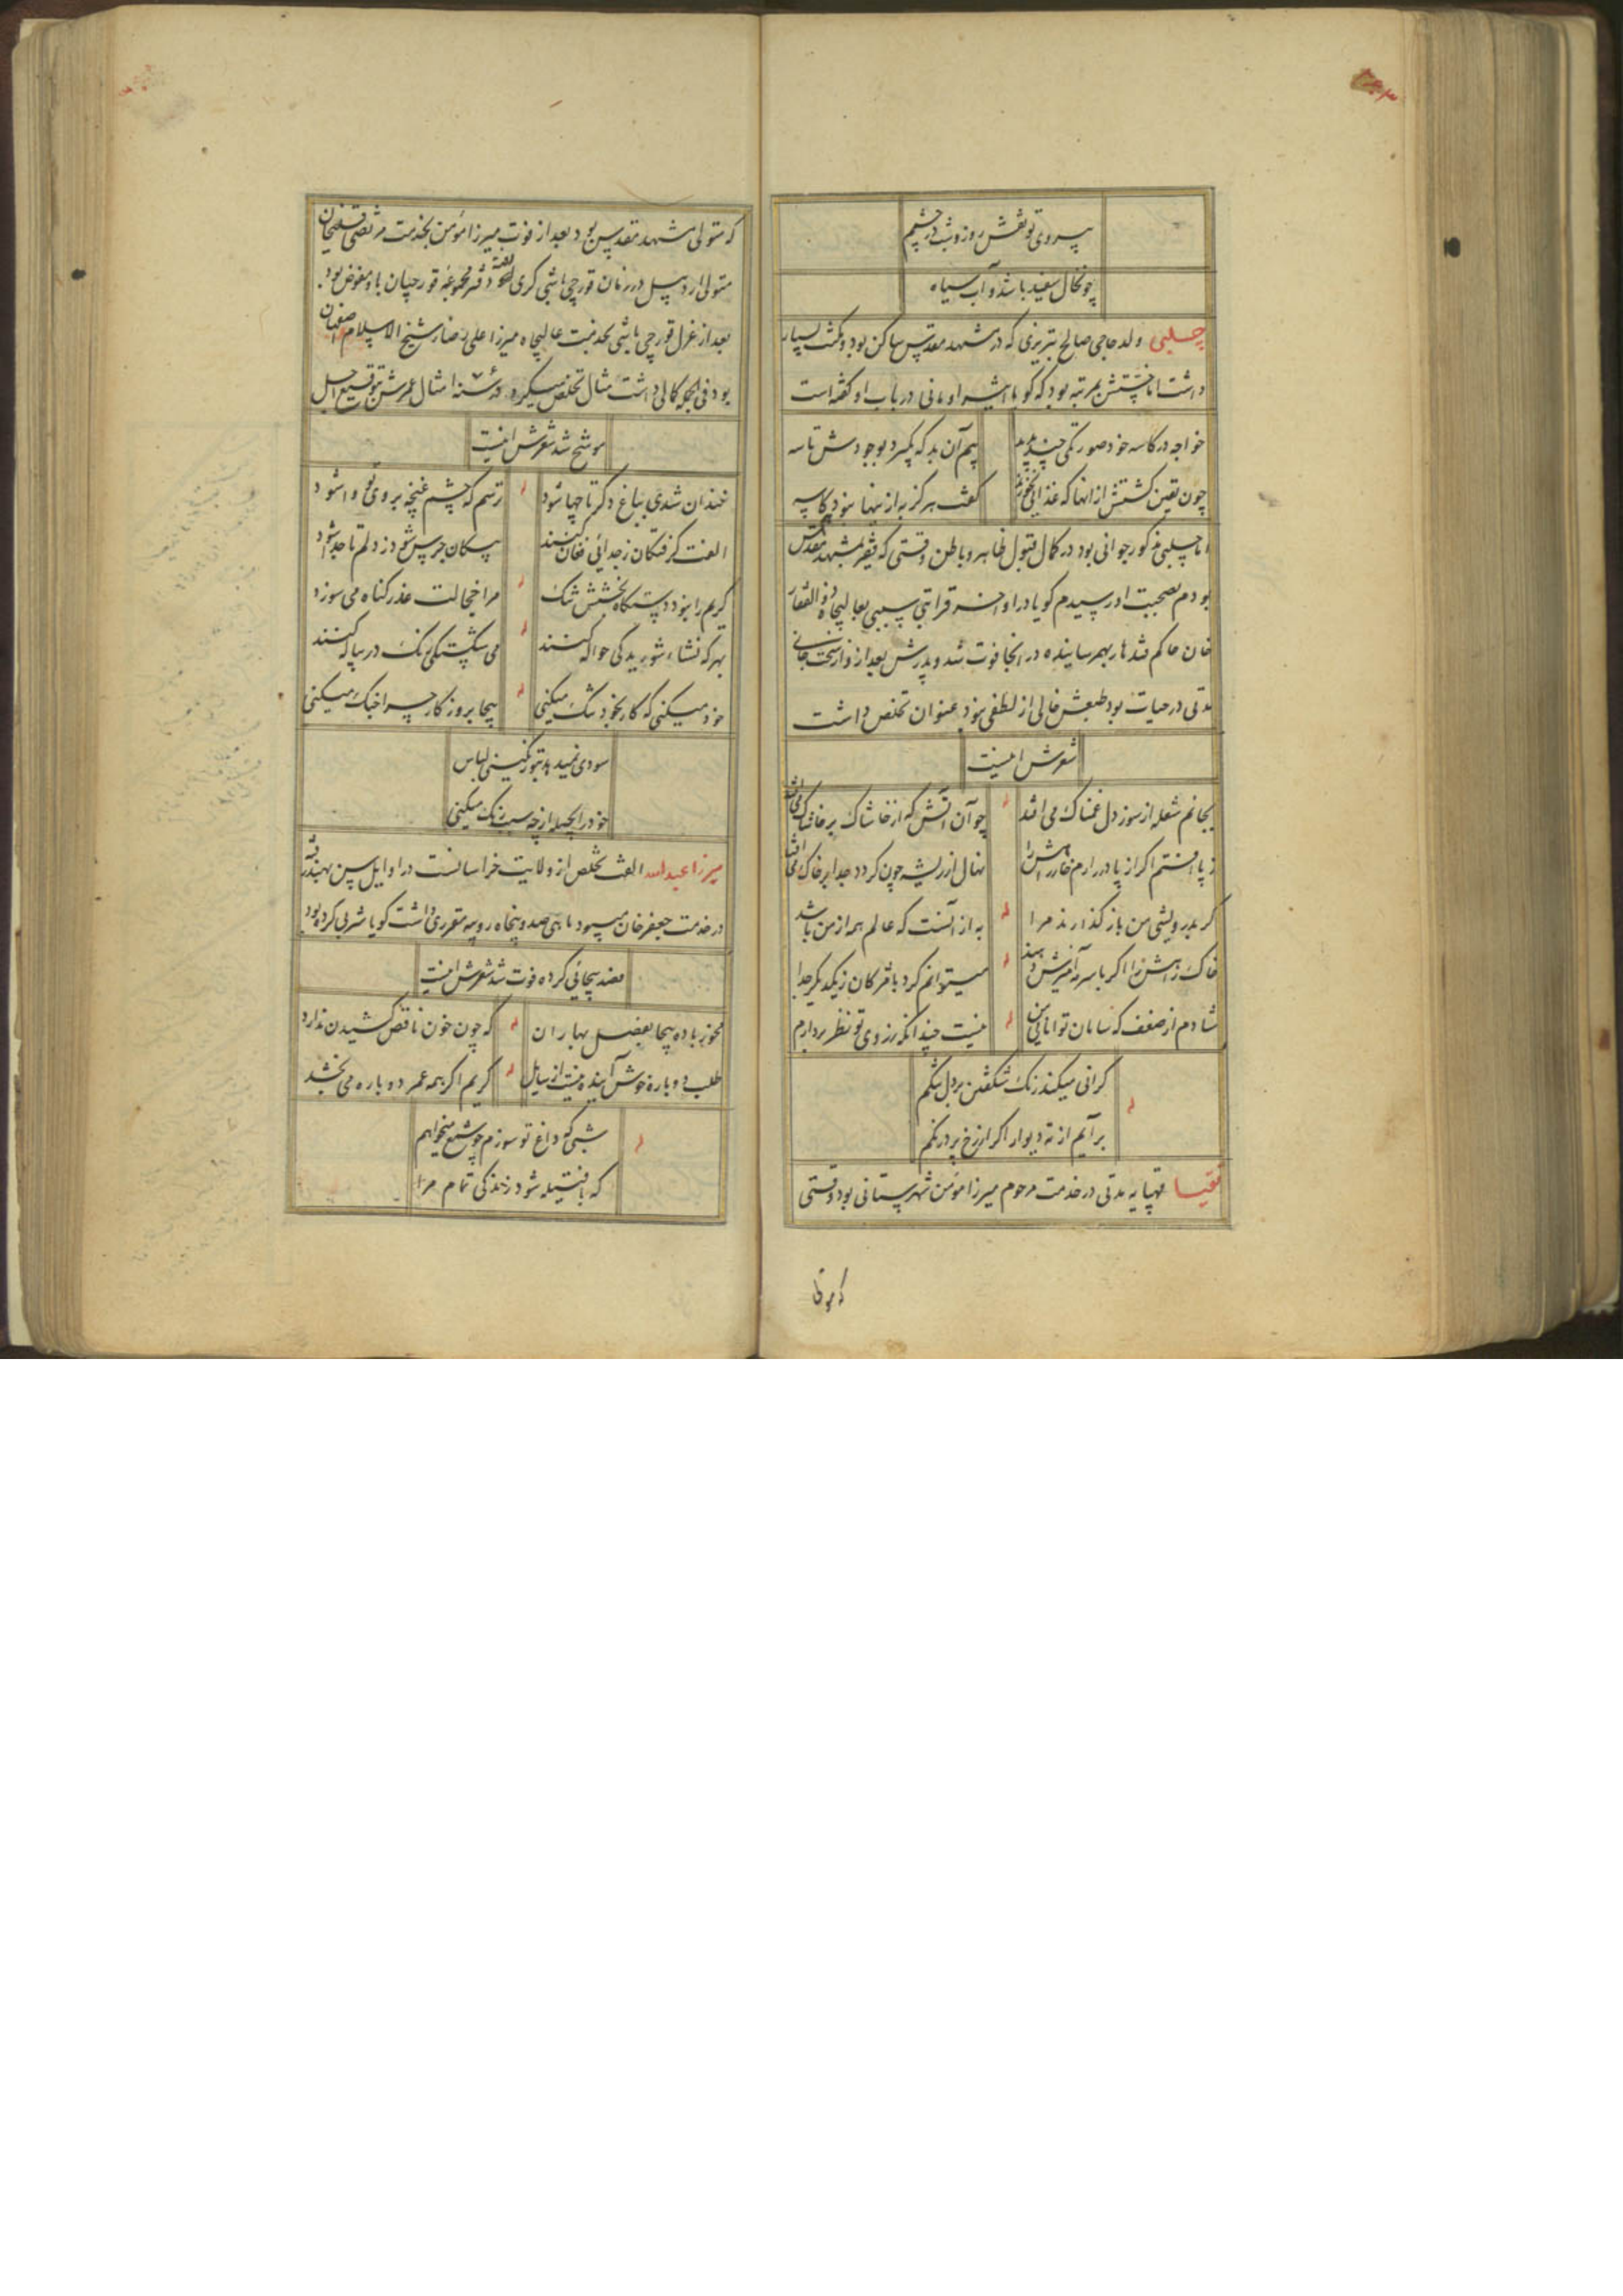 بیروی تو نقش روز و شب در چشم
چون خال سفید باشد و آب سیاه
چلبی ولد حاجی صالح تبریزی که در مشهد مقدس ساکن بود و مکنت بسیار
داشت اما خستش بمرتبه بود که گویا اثیر اومانی در باب او گفته است
خواجه در کاسه خود صورتکی چند بدید
بیم آن بد که بگیرد بوجودش تاسه
چون یقین گشتش از انها که غذایی نخورند
گفت هرگز به از ینها نبود همکاسه
اما چلبی مذکور جوانی بود در کمال قبول ظاهر و باطن وقتی که فقیر بمشهد مقدس
بودم بصحبت او رسیدم گویا در اواخر قرابتی سببی بعالیجاه ذوالفقار
خان حاکم قندهار بهم رسانیده در انجا فوت شد و پدرش بعد از او از سخت جانی
مدتی در حیات بود طبعش خالی از لطفی نبود عنوان تخلص داشت
شعرش اینست
بجانم شعله از سوز دل غمناک می افتد
چو آن آتش که از خاشاک بر خاشاک می افتد
ز پا افتم اگر از پا در ارم خار راهش را
نهال از ریشه چون گردد جدا بر خاک می افتد
گر بدرویشی من باز گذارند مرا
به از آنست که عالم همه از من باشد
خاک راهش را اگر با سرمه آمیزش دهند
میتوانم کرد با مژگان ز یکدیگر جدا
شادم از ضعف که سامان توانایی من
نیست چندانکه ز روی تو نظر بردارم
گرانی میکند رنگ شکفتن بر دل تنگم
بر آیم از ته دیوار اگر از رخ پرد رنگم
مقیما قهپایه مدتی در خدمت مرحوم میرزا مؤمن شهرستانی بود وقتی
که متولی
که متولی مشهد مقدس بود بعد از فوت میرزا مؤمن بخدمت مرتضی قلیخان
متولی اردبیل در زمان قورچی باشی گری دفتر مجموعه قورچیان باو مفوض بود
بعد از عزل قورچی باشی بخدمت عالیجاه میرزا علی رضا شیخ الاسلام اصفهان
بود فی الجمله کمالی داشت مثال تخلص میکرد در سنه امثال عمرش بتوقیع اجل
موشح شد شعرش اینست
خندان شدی بباغ دگر تا چها شود
ترسم که چشم غنچه بروی تو وا شود
الفت گرفتگان ز جدائی فغان کنند
پیکان جرس شود ز دلم تا جدا شود
کریم را نبود دستگاه بخشش تنگ
مرا خجالت عذر گناه می سوزد
بهر که نشاء شوریدگی حواله کنند
می شکستگی رنگ در پیاله کنند
خود میکنی که کار بخود تنگ میکنی
بیجا بروزگار چرا جنگ میکنی
سودی نمیدهد بتو رنگینی لباس
خود را بحیله از چه سبب رنگ میکنی
میرزا عبدالله الفت تخلص از ولایت خراسانست در اوایل سن بهند رفته
در خدمت جعفر خان میبود ماهی صد و پنجاه روپیه مقرری داشت گویا شربی کرده بود
فصد بیجائی کرده فوت شد شعرش اینست
مخور باده بیجا بفصل بهاران
که چون خون ناقص کشیدن ندارد
طلب دوباره خوش آینده نیست از سایل
کریم اگر همه عمر دوباره می بخشد
شبی که داغ تو سوزم چو شمع میخواهم
که با فتیله شود زندگی تمام مرا